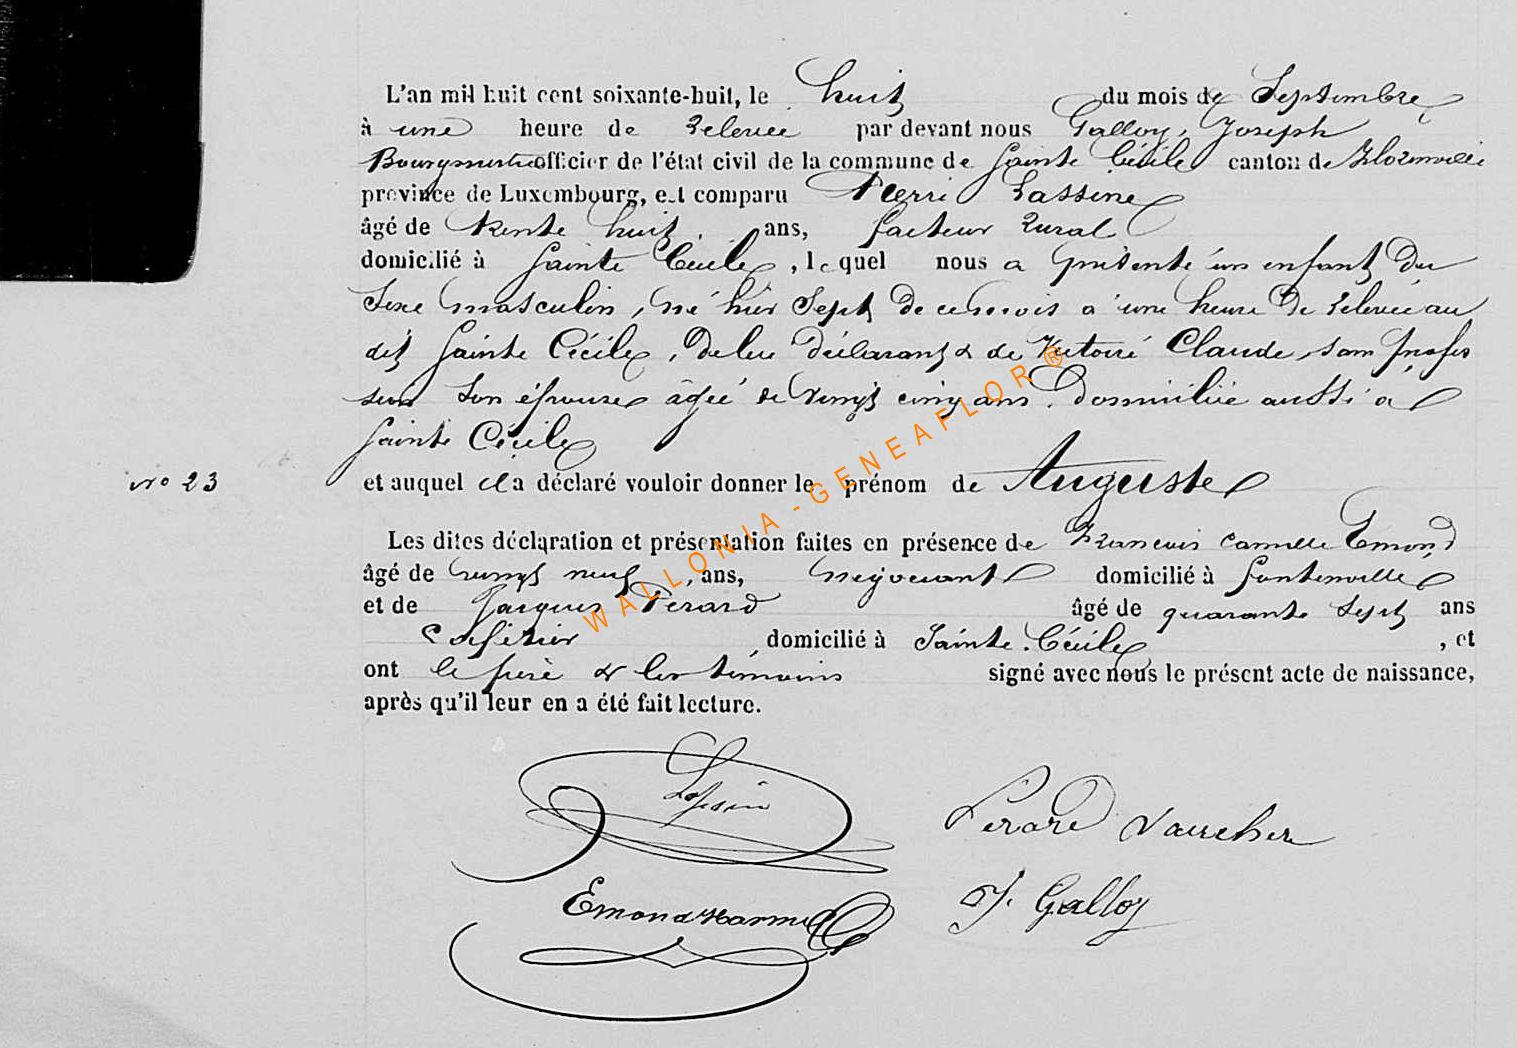 L'an mil huit cent soixante-huit, le huit du mois de Septembre
à une heure de relevée par devant nous Galloy, Joseph
Bourgmestre officier de l'état civil de la commune de Sainte Cécile canton de Florenville
province de Luxembourg, est comparu Henri Lassine
âgé de trente huit ans, facteur rural
domicilié à Sainte Cécile, lequel nous a présenté un enfant du
sexe masculin, né hier sept de ce mois a une heure de relevée au
dit Sainte Cécile, de lui déclarant & de Victoire Claude, sans profes
sion son épouse âgée de vingt cinq ans. Domiciliée aussi à
Sainte Cécile
No 23 et auquel il a déclaré vouloir donner le prénom de Auguste
Les dites déclaration et présentation faites en présence de Francois Camille Emond
âgé de vingt neuf, ans, négociant domicilié à Fontenoille
et de Jacques Perard âgé de quarante sept ans
Cafetier, domicilié à Sainte Cécile, et
ont le père & les témoins signé avec nous le présent acte de naissance,
après qu'il leur en a été fait lecture.
Perard Vaucher
Emond J. Galloy
WALLONIA - GENEAFLOR®